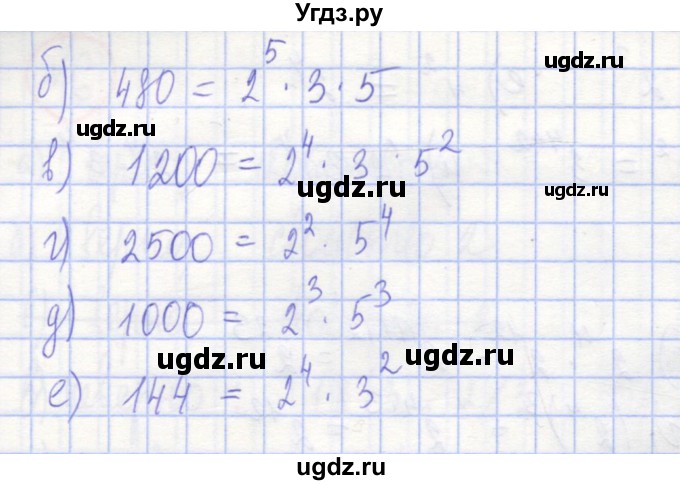 Угдз.ру
б) 480 = 2⁵ · 3 · 5
ugdz.ru
ugdz.ru
в) 1200 = 2⁴ · 3 · 5²
ugdz.ru
ugdz.ru
г) 2500 = 2² · 5⁴
д) 1000 = 2³ · 5³
ugdz.ru
ugdz.ru
е) 144 = 2⁴ · 3²
ugdz.ru